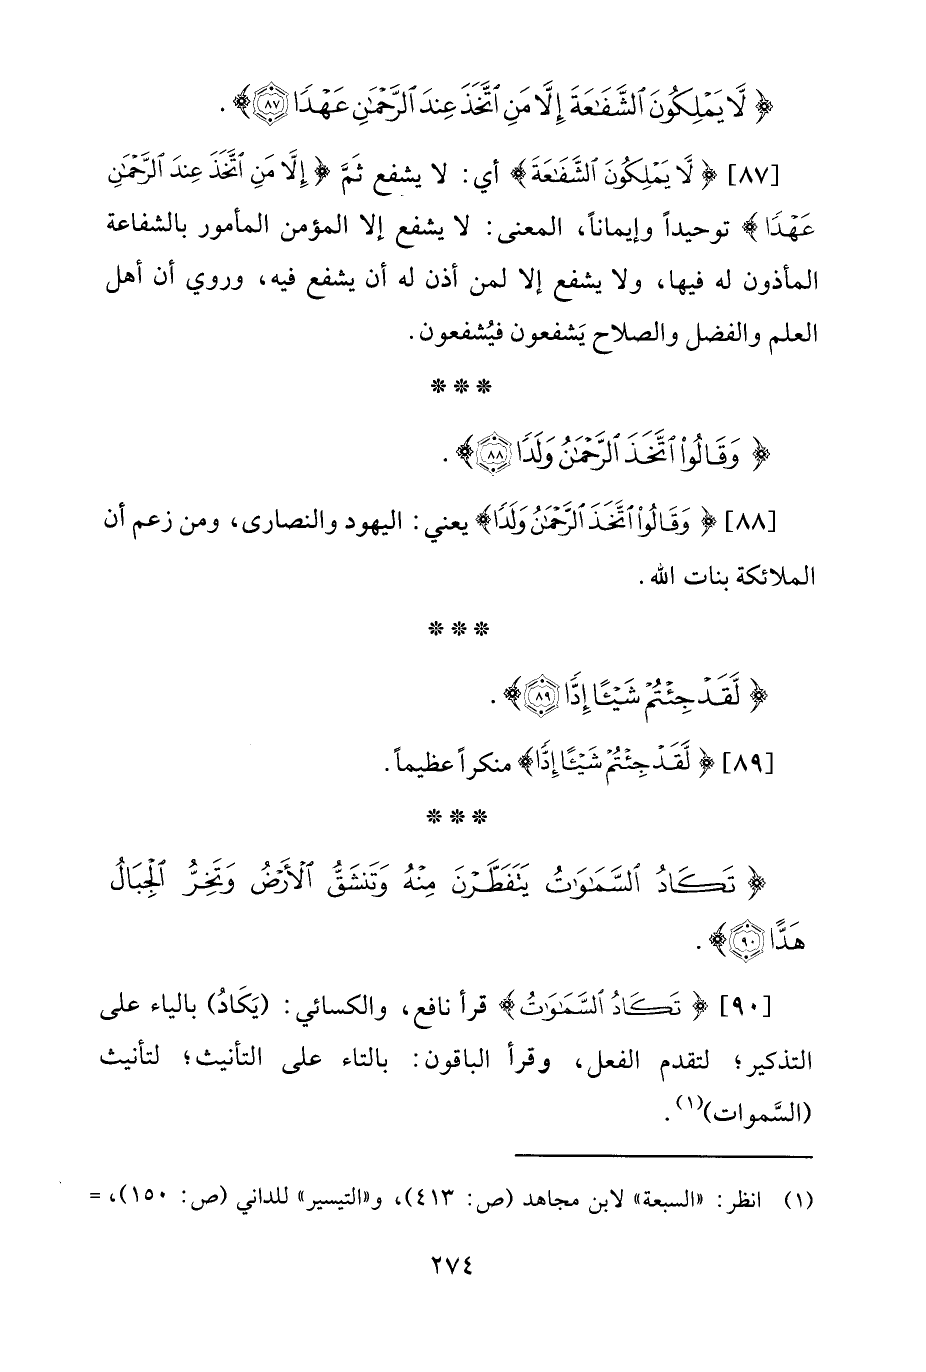 ﴿ لَّا يَمْلِكُونَ ٱلشَّفَٰعَةَ إِلَّا مَنِ ٱتَّخَذَ عِندَ ٱلرَّحْمَٰنِ عَهْدًا ٨٧ ﴾ .
[٨٧] ﴿ لَّا يَمْلِكُونَ ٱلشَّفَٰعَةَ ﴾ أي: لا يشفع ثَمَّ ﴿ إِلَّا مَنِ ٱتَّخَذَ عِندَ ٱلرَّحْمَٰنِ
عَهْدًا ﴾ توحيداً وإيماناً، المعنى: لا يشفع إلا المؤمن المأمور بالشفاعة
المأذون له فيها، ولا يشفع إلا لمن أذن له أن يشفع فيه، وروي أن أهل
العلم والفضل والصلاح يَشفعون فيُشفعون.
* * *
﴿ وَقَالُوا۟ ٱتَّخَذَ ٱلرَّحْمَٰنُ وَلَدًا ٨٨ ﴾ .
[٨٨] ﴿ وَقَالُوا۟ ٱتَّخَذَ ٱلرَّحْمَٰنُ وَلَدًا ﴾ يعني: اليهود والنصارى، ومن زعم أن
الملائكة بنات الله .
* * *
﴿ لَّقَدْ جِئْتُمْ شَيْـًٔا إِدًّا ٨٩ ﴾ .
[٨٩] ﴿ لَّقَدْ جِئْتُمْ شَيْـًٔا إِدًّا ﴾ منكراً عظيماً.
* * *
﴿ تَكَادُ ٱلسَّمَٰوَٰتُ يَتَفَطَّرْنَ مِنْهُ وَتَنشَقُّ ٱلْأَرْضُ وَتَخِرُّ ٱلْجِبَالُ
هَدًّا ٩٠ ﴾ .
[٩٠] ﴿ تَكَادُ ٱلسَّمَٰوَٰتُ ﴾ قرأ نافع، والكسائي: (يَكَادُ) بالياء على
التذكير؛ لتقدم الفعل، وقرأ الباقون: بالتاء على التأنيث؛ لتأنيث
(السَّموات)(١).
(١) انظر: «السبعة» لابن مجاهد (ص: ٤١٣)، و«التيسير» للداني (ص: ١٥٠)، =
٢٧٤